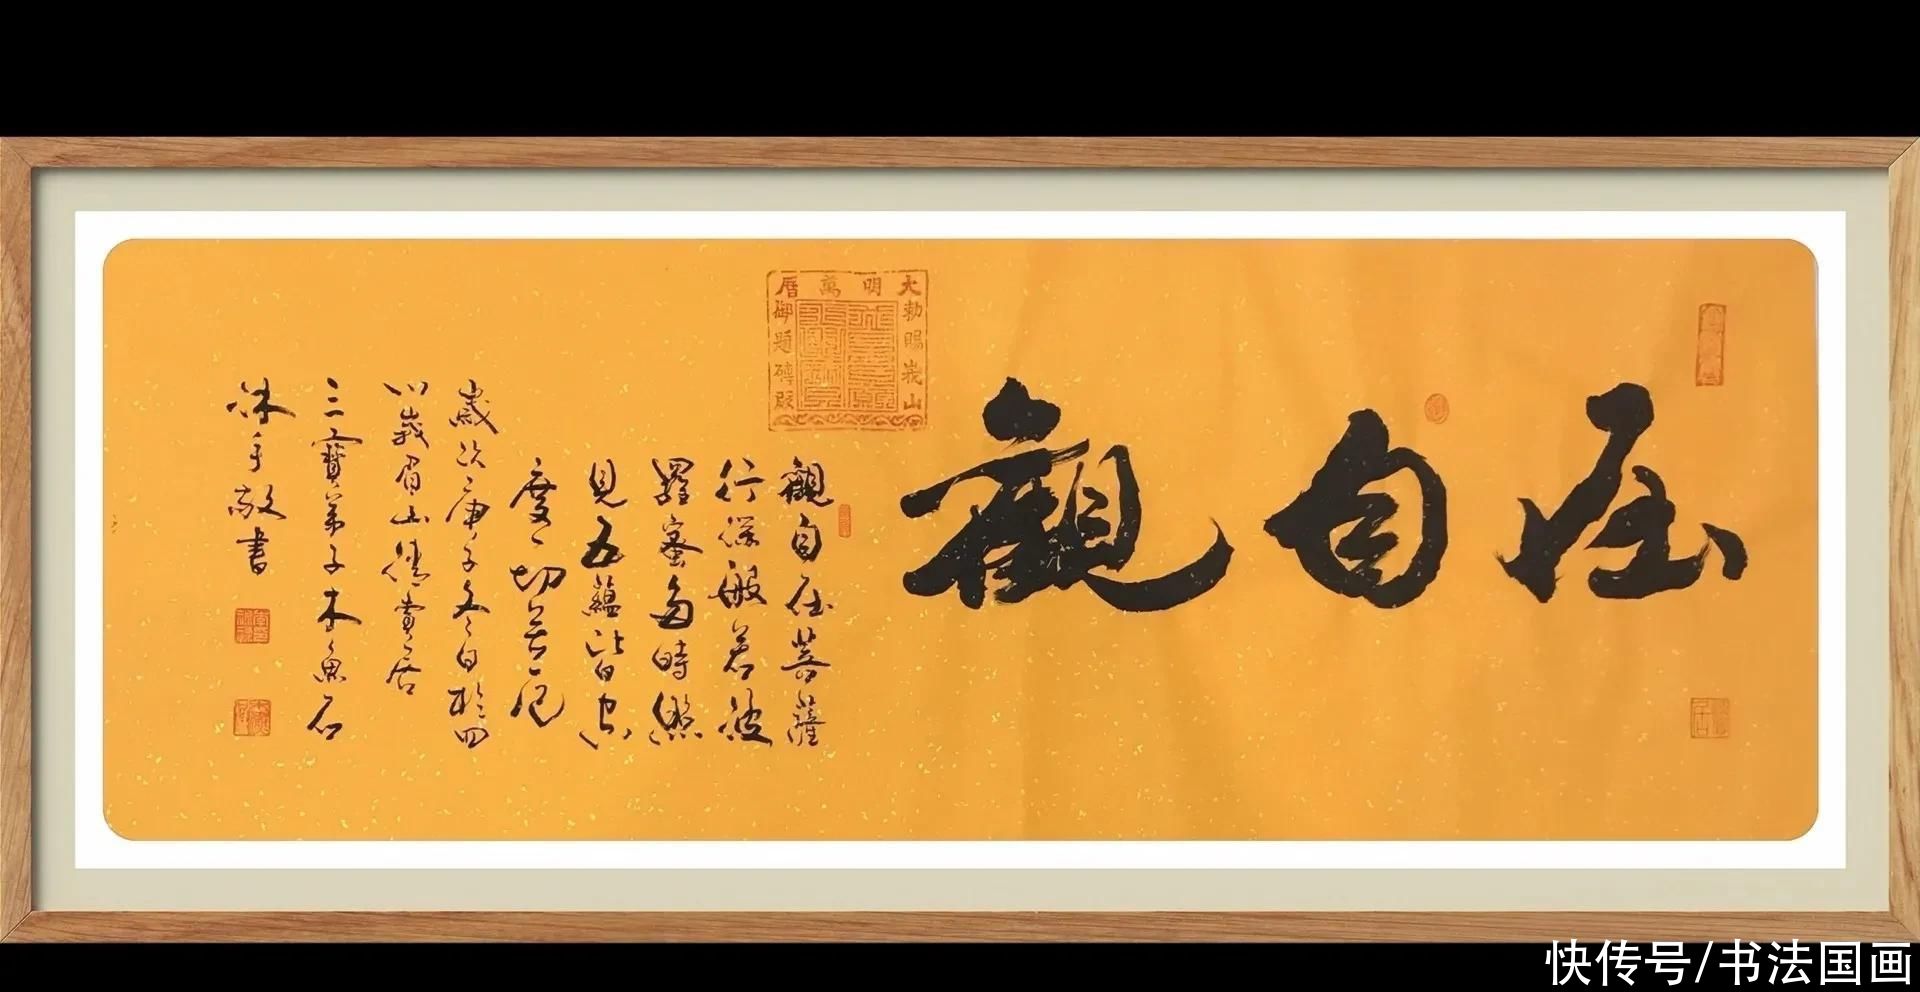 觀自在
大明萬曆
勅賜峩山
御題磚殿
觀自在菩薩
行深般若波
羅蜜多時照
見五蘊皆空
度一切苦厄
歲次庚子冬日於四
川峨眉山賞居
三寶弟子木魚石
沐手敬書
快传号/书法国画